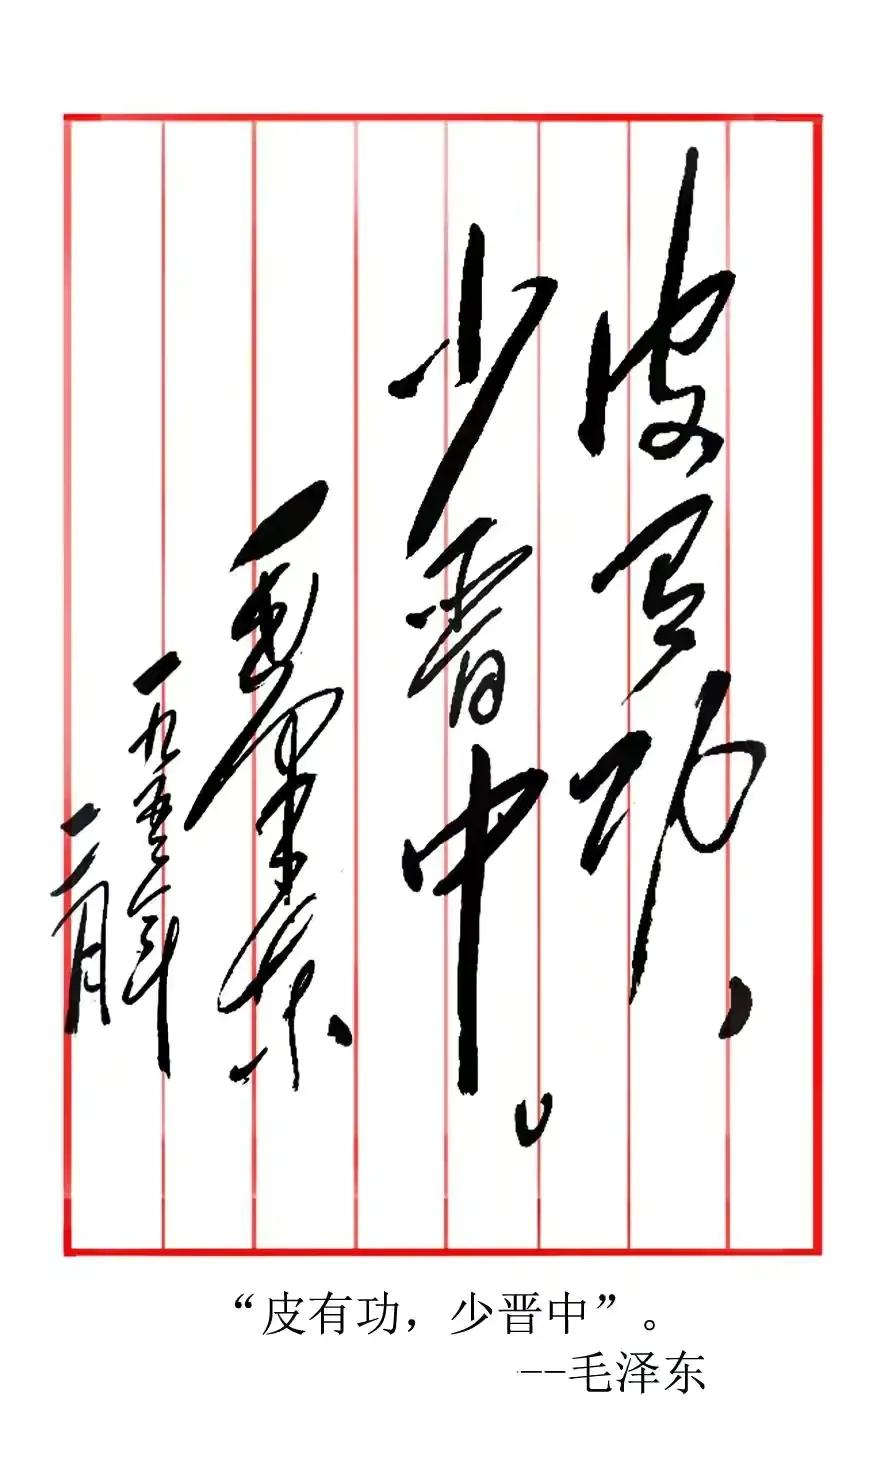 皮有功，
少晋中。
毛泽东
一九五五年
二月
“皮有功，少晋中”。
--毛泽东